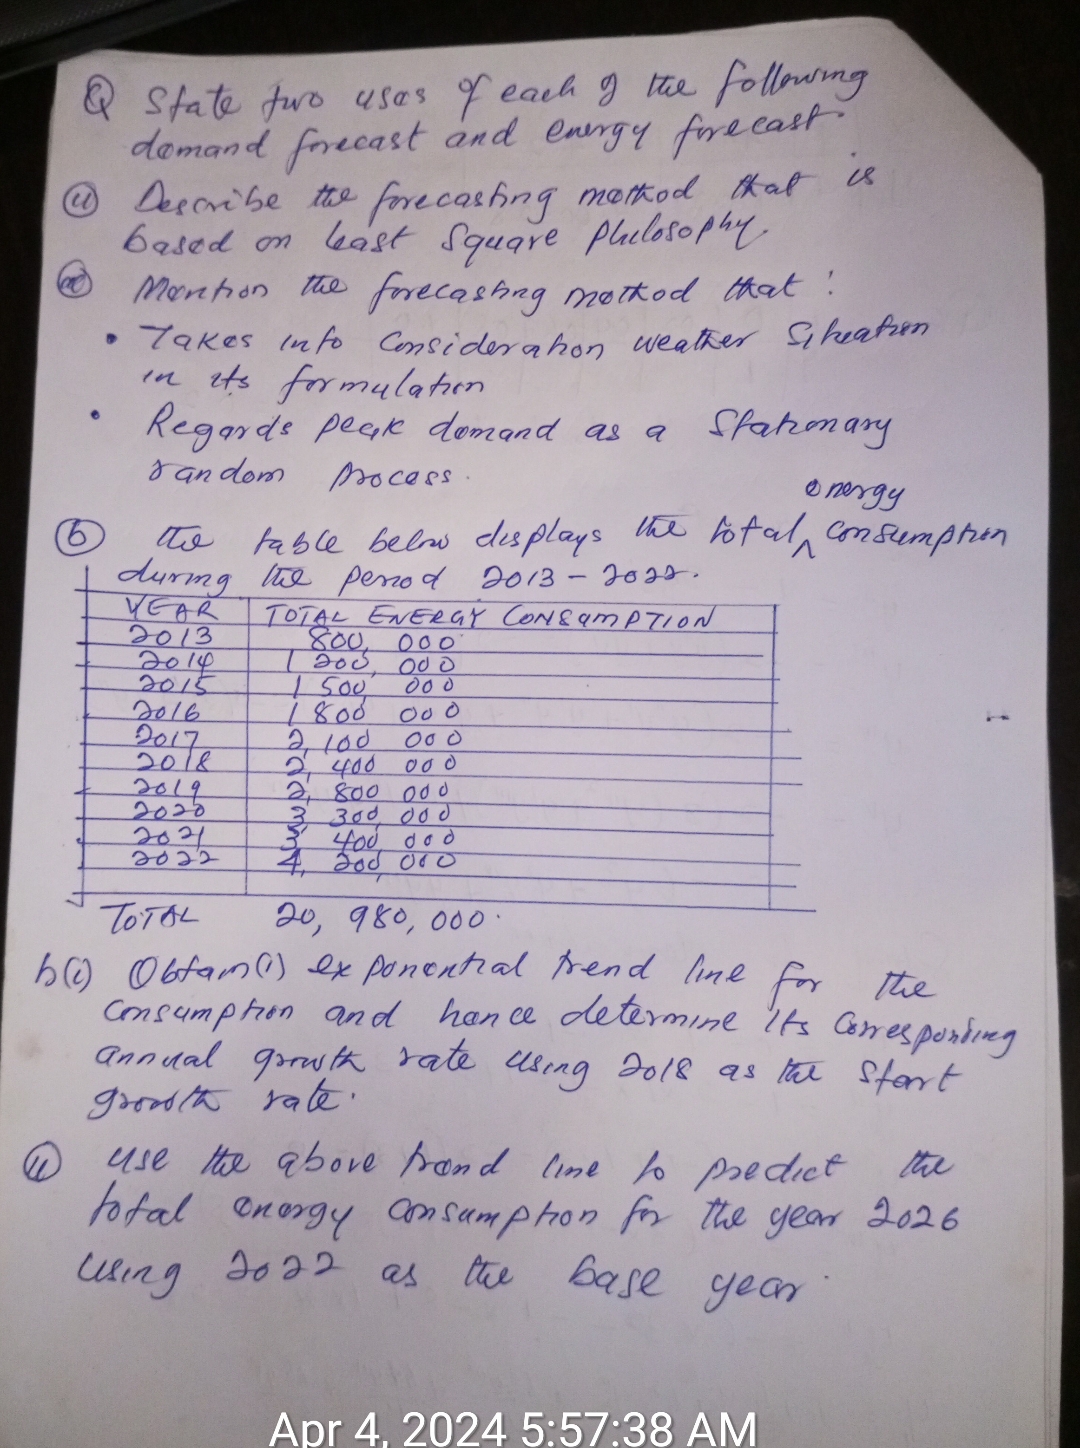 Q State two uses of each of the following
demand forecast and energy forecast.
(ii) Describe the forecasting method that is
based on least square philosophy.
Mention the forecasting method that :
• Takes into consideration weather situation
in its formulation
• Regards peak demand as a stationary
random process.
energy
(b) the table below displays the total ^ consumption
during the period 2013 - 2022.
YEAR TOTAL ENERGY CONSUMPTION
2013 800, 000
2014 1 200, 000
2015 1 500, 000
2016 1 800 000
2017 2, 100 000
2018 2, 400 000
2019 2, 800 000
2020 3, 300, 000
2021 3, 400, 000
2022 4, 200, 000
TOTAL 20, 980, 000.
b(i) Obtain (i) exponential trend line for the
consumption and hence determine its corresponding
annual growth rate using 2018 as the start
growth rate.
(ii) use the above trend line to predict the
total energy consumption for the year 2026
using 2022 as the base year.
Apr 4, 2024 5:57:38 AM